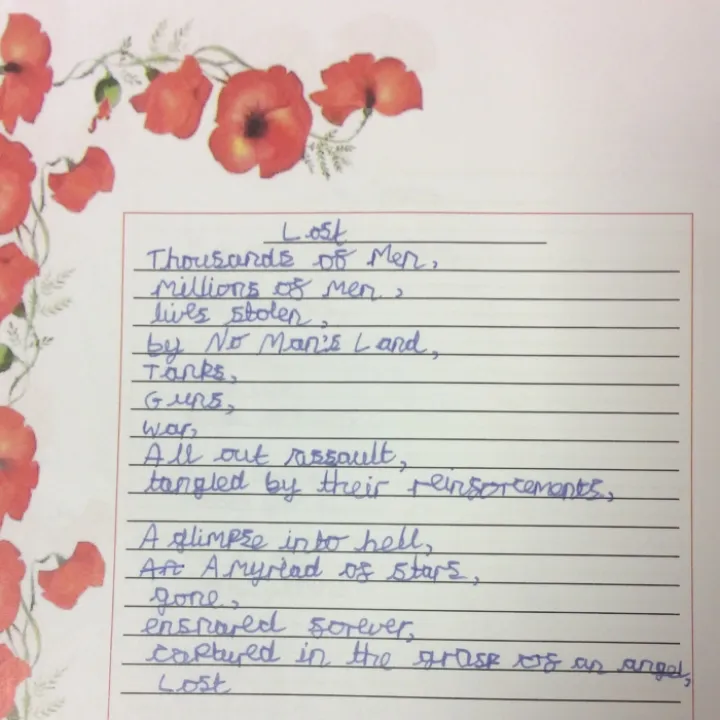 Lost
Thousands of Men,
millions of men,
lives stolen,
by No Man's Land,
Tanks,
Guns,
War,
All out assault,
tangled by their reinforcements,
A glimpse into hell,
A myriad of stars,
gone,
ensnared forever,
captured in the grasp of an angel,
Lost